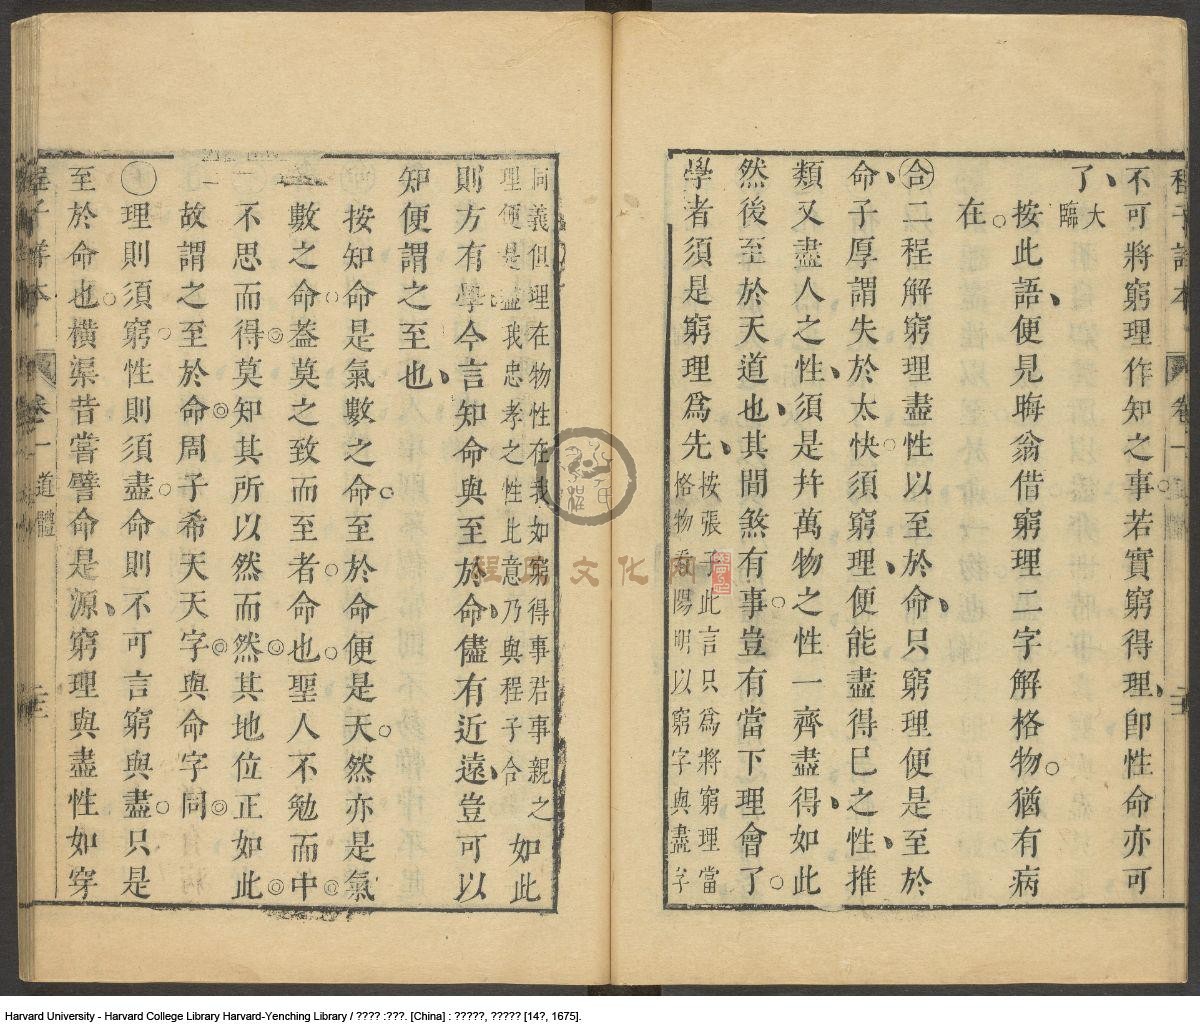 不可將窮理作知之事若實窮得理即性命亦可
了大臨
按此語便見晦翁借窮理二字解格物猶有病
在
合二程解窮理盡性以至於命只窮理便是至於
命子厚謂失於太快須窮理便能盡得已之性推
類又盡人之性須是幷萬物之性一齊盡得如此
然後至於天道也其間煞有事豈有當下理會了
學者須是窮理爲先按張子此言只爲將窮理當格物看陽明以窮字與盡字
同義但理在物性在我如窮得事君事親之理便是盡我忠孝之性此意乃與程子合如此
則方有學今言知命與至於命儘有近遠豈可以
知便謂之至也
按知命是氣數之命至於命便是天然亦是氣
數之命葢莫之致而至者命也聖人不勉而中
不思而得莫知其所以然而然其地位正如此
故謂之至於命周子希天天字與命字同
理則須窮性則須盡命則不可言窮與盡只是
至於命也橫渠昔嘗譬命是源窮理與盡性如穿
卷一 道體
Harvard University - Harvard College Library Harvard-Yenching Library / ???? :???. [China] : ?????, ????? [14?, 1675].